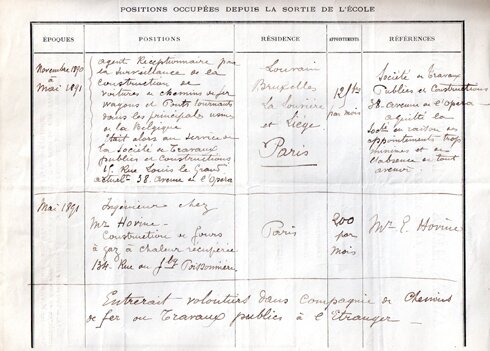 POSITIONS OCCUPÉES DEPUIS LA SORTIE DE L'ÉCOLE
ÉPOQUES POSITIONS RÉSIDENCE APPOINTEMENTS RÉFÉRENCES
Novembre 1890
à
Mai 1891
agent Receptionnaire pr
la surveillance de la
construction de
voitures de chemins de fer
wagons et Ponts tournants
dans les principales usines
de la Belgique
Etait alors au service de
la Société de Travaux
publics et Constructions
Rue Louis le Grand
actuelt 38. avenue de l'Opera
Louvain
Bruxelles
La Louviere
et Liége
Paris
par mois
Société de Travaux
Publics et Constructions
38. avenue de l'Opera
a quitté la
Socté en raison des
appointements trop
minimes et de
l'absence de tout
avenir.
Mai 1891
Ingénieur chez
Mr Hovine
Construction de fours
à gaz à chaleur recupérée
134. Rue du fbg Poissonnière
Paris
200
par
mois
Mr E. Hovine
Entrerait volontiers dans Compagnie de Chemins
de fer ou Travaux publics à l'Etranger